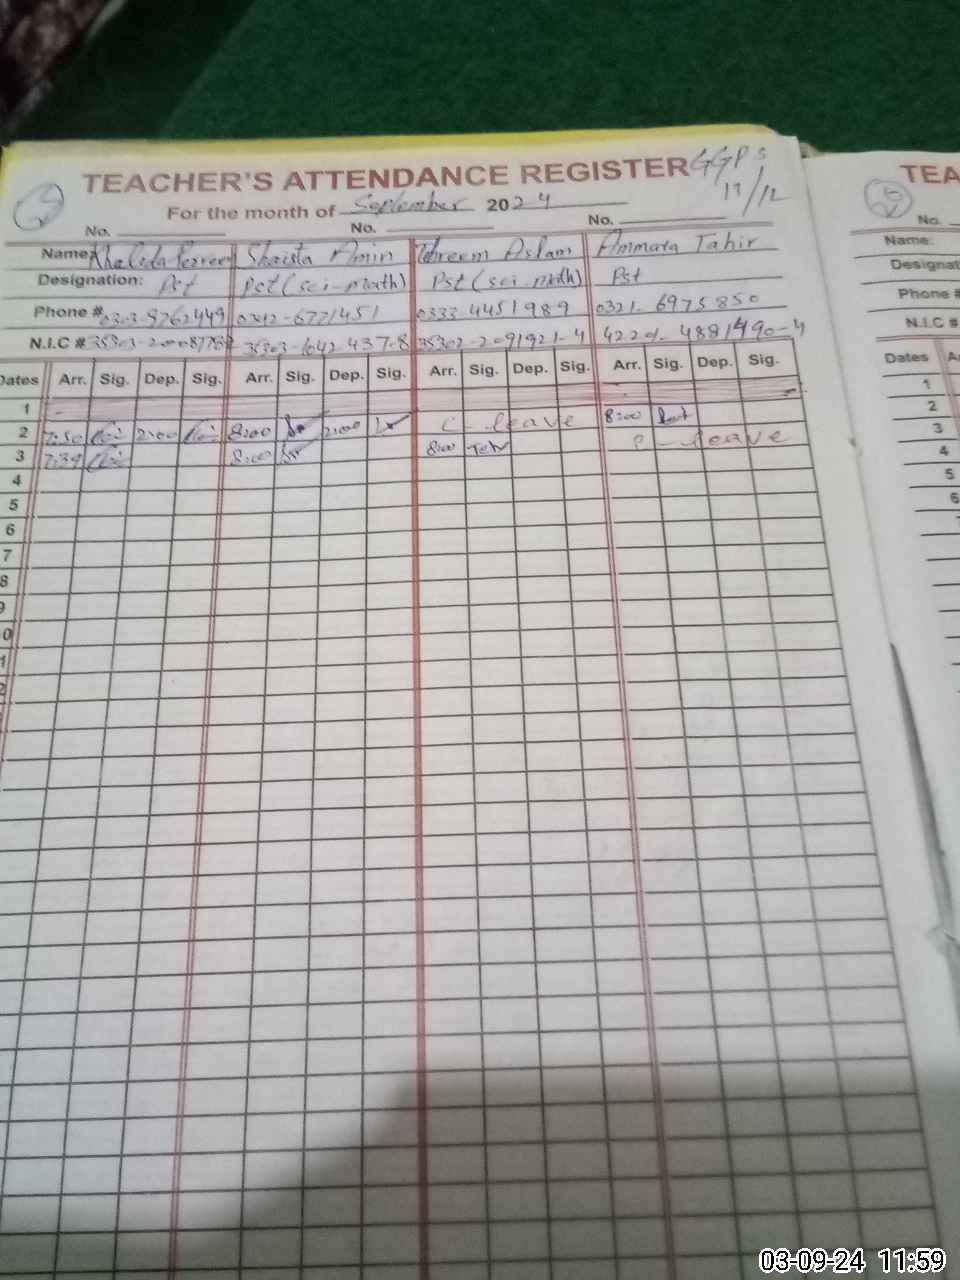 TEACHER'S ATTENDANCE REGISTER GGPS
17/12
For the month of September 2024
No. No. No.
Name: Khalida Shaista Amin Aslam Ammara Tahir
Designation: Pst Pst (sci-math) Pst (sci-math) Pst
Phone # 0303-9762449 0342-6771451 0333-4451989 0321-6975850
N.I.C #
Dates Arr. Sig. Dep. Sig. Arr. Sig. Dep. Sig. Arr. Sig. Dep. Sig. Arr. Sig. Dep. Sig.
1
2 7:50 2:00 8:00 2:00 C-leave 8:00
3 7:39 8:00 8:00 leave
4
5
6
7
8
9
0
1
2
TEA
No.
Name:
Designat
Phone #
N.I.C #
Dates A
1
2
3
4
5
6
03-09-24 11:59